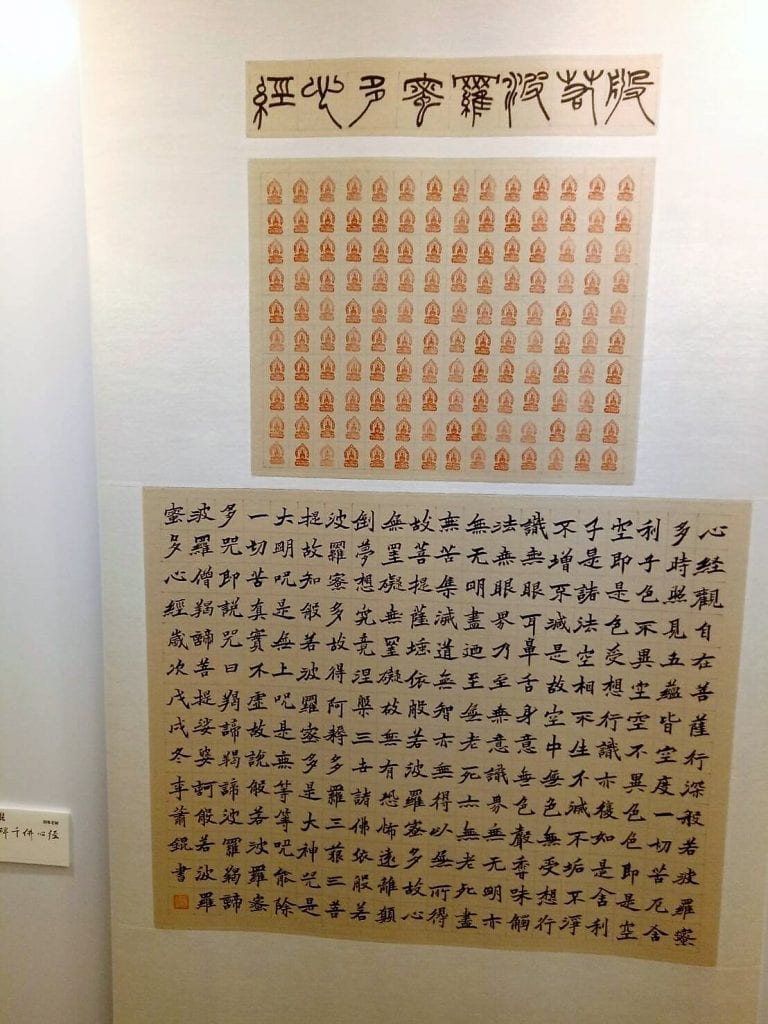 般若波羅蜜多心經
心經觀自在菩薩行深般若波羅蜜
多時照見五蘊皆空度一切苦厄舍
利子色不異空空不異色色即是空
空即是色受想行識亦復如是舍利
子是諸法空相不生不滅不垢不淨
不增不減是故空中無色無受想行
識無眼耳鼻舌身意無色聲香味觸
法無眼界乃至無意識界無无明亦
無无明盡迺至無老死亦無老死盡
無苦集滅道無智亦無得以無所得
故菩提薩埵依般若波羅蜜多故心
無罣礙無罣礙故無有恐怖遠離顛
倒夢想究竟涅槃三世諸佛依般若
波羅蜜多故得阿耨多羅三藐三菩
提故知般若波羅蜜多是大神咒是
大明咒是無上咒是無等等咒能除
一切苦真實不虛故說般若波羅蜜
多咒即說咒曰羯諦羯諦波羅羯諦
波羅僧羯諦菩提娑婆訶般若波羅
蜜多心經歲次戊戌冬年蕭錕書
碑千佛心经